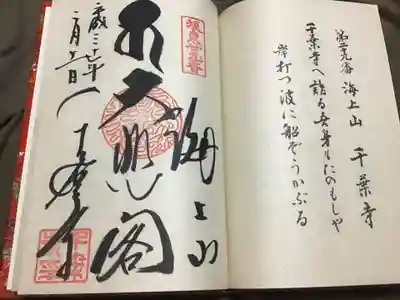 第廿九番 海上山 千葉寺
千葉寺へ詣る吾身もたのもしや
岸打つ波に船ぞうかぶる
坂東廿九番
海上山
大悲閣
千葉寺
平成三十年
二月